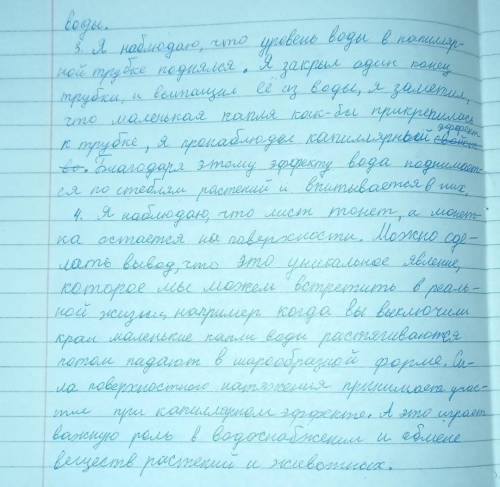 воды.
3. Я наблюдаю, что уровень воды в капилляр-
ной трубке поднялся. Я закрыл один конец
трубки, и вытащил её из воды, я заметил,
что маленькая капля как-бы прикрепилась
к трубке, я пронаблюдал капиллярный эффект
Благодаря этому эффекту вода поднимает-
ся по стеблям растений и впитывается в них.
4. Я наблюдаю, что лист тонет, а монет-
ка остается на поверхности. Можно сде-
лать вывод, что это уникальное явление,
которое мы можем встретить в реаль-
ной жизни, например когда вы выключили
кран маленькие капли воды растягиваются
потом падают в шарообразной форме. Си-
ла поверхностного натяжения принимает учас-
тие при капиллярном эффекте. А это играет
важную роль в водоснабжении и обмене
веществ растений и животных.